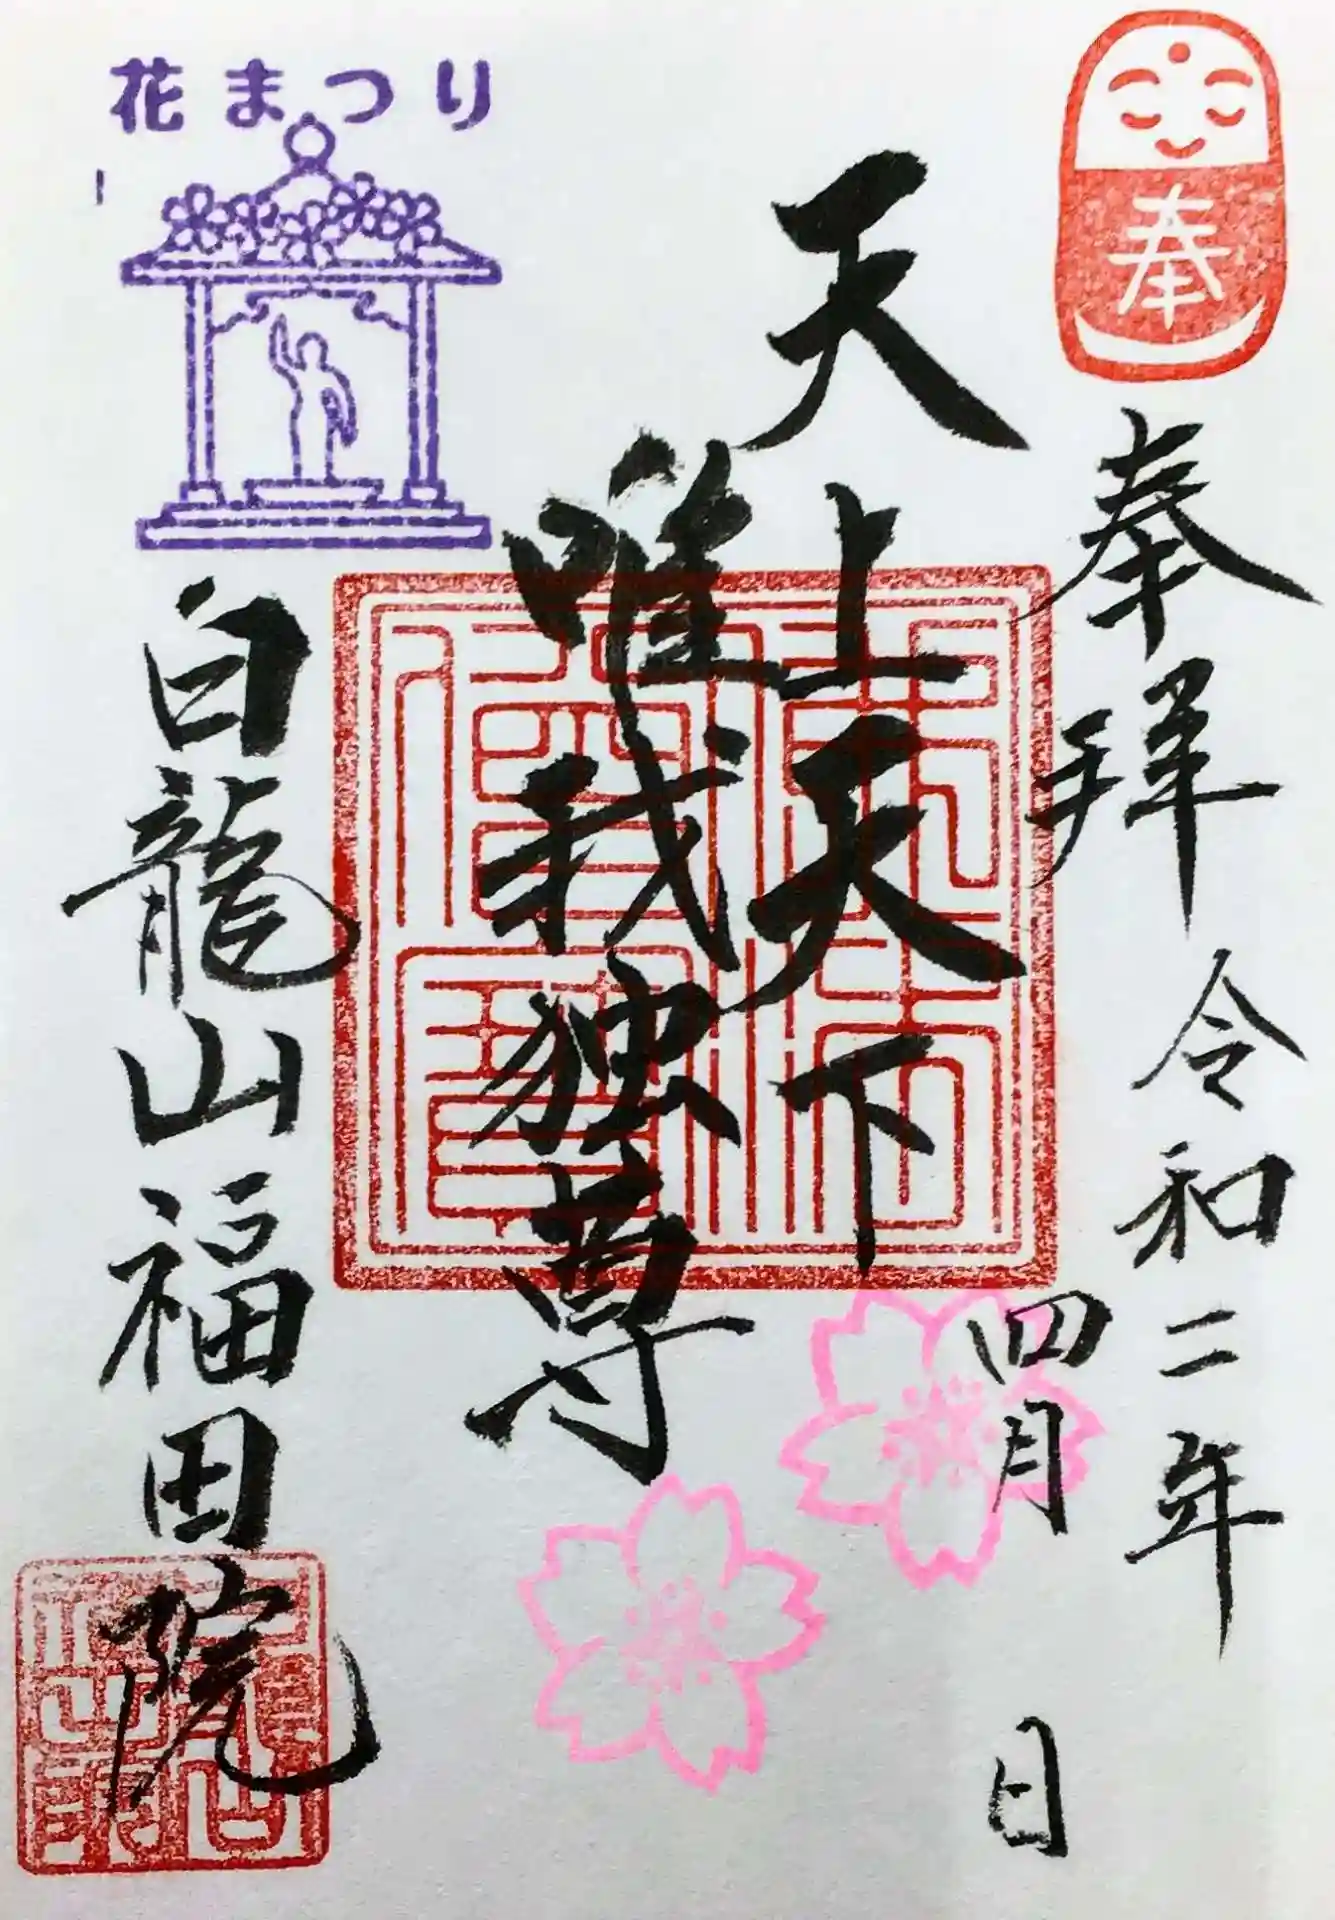 奉
奉拝 令和二年
四月 日
天上天下
唯我独尊
花まつり
白龍山福田院
佛法僧寶